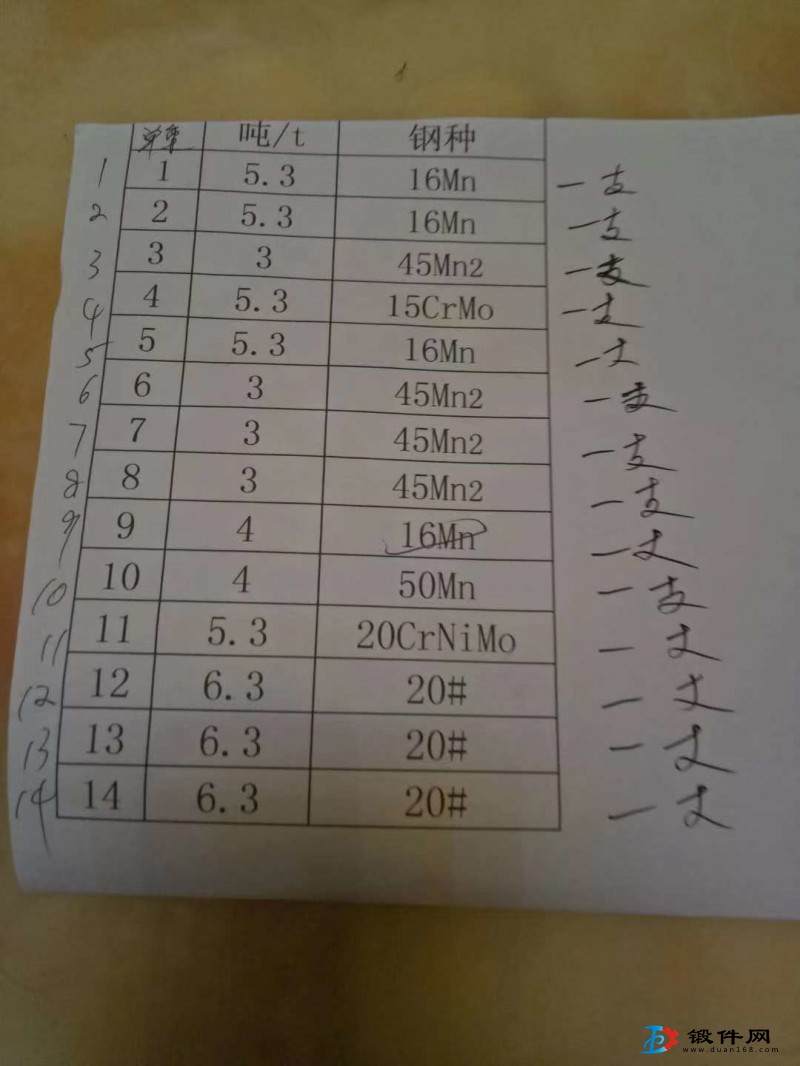 单重 吨/t 钢种
1 1 5.3 16Mn 一支
2 2 5.3 16Mn 一支
3 3 3 45Mn2 一支
4 4 5.3 15CrMo 一支
5 5 5.3 16Mn 一支
6 6 3 45Mn2 一支
7 7 3 45Mn2 一支
8 8 3 45Mn2 一支
9 9 4 16Mn 一支
10 10 4 50Mn 一支
11 11 5.3 20CrNiMo 一支
12 12 6.3 20# 一支
13 13 6.3 20# 一支
14 14 6.3 20# 一支
锻件网
www.duan168.com